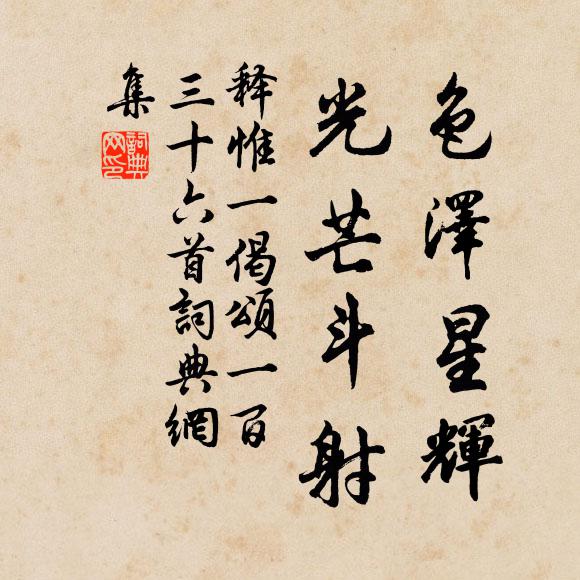 色澤星輝
光芒斗射
释惟一偈頌一百
三十六首詞典網
集
詞典網印